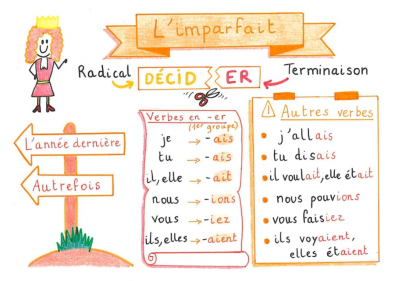 L'imparfait
Radical
DÉCID ER
Terminaison
L'année dernière
Autrefois
Verbes en -er
(1er groupe)
je → -ais
tu → -ais
il, elle → -ait
nous → -ions
vous → -iez
ils, elles → -aient
Autres verbes
j'allais
tu disais
il voulait, elle était
nous pouvions
vous faisiez
ils voyaient,
elles étaient